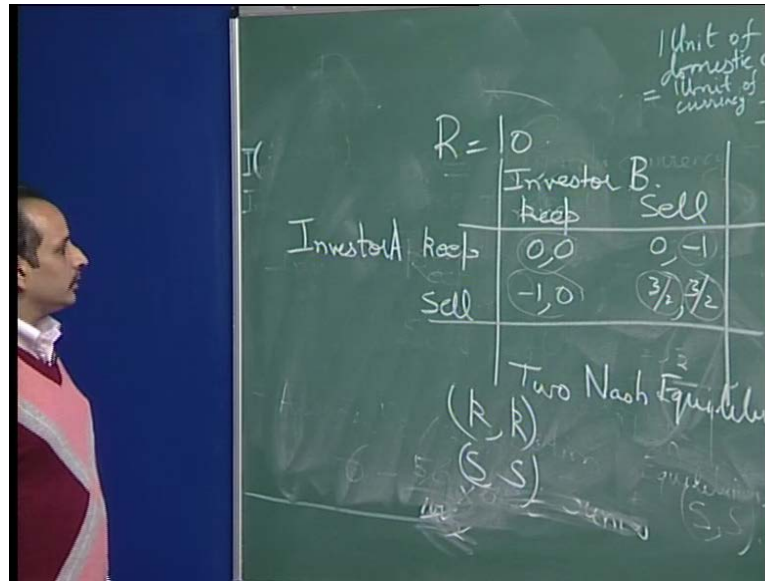 1 Unit of
domestic
= 1 Unit of
currency
R = 10
Investor B.
keep Sell
Investor A keep 0,0 0, -1
Sell -1,0 3/2, 3/2
Two Nash
(k, k)
(S, S)
(S, S).